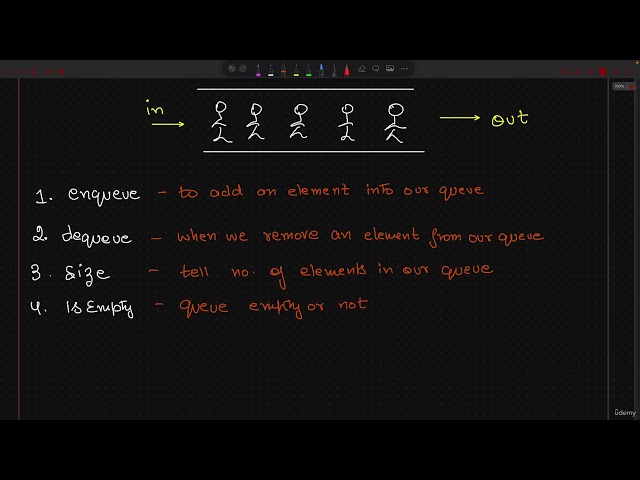 in
out
1. enqueue - to add an element into our queue
2. dequeue - when we remove an element from our queue
3. size - tell no. of elements in our queue
4. isEmpty - queue empty or not
100%
ûdemy